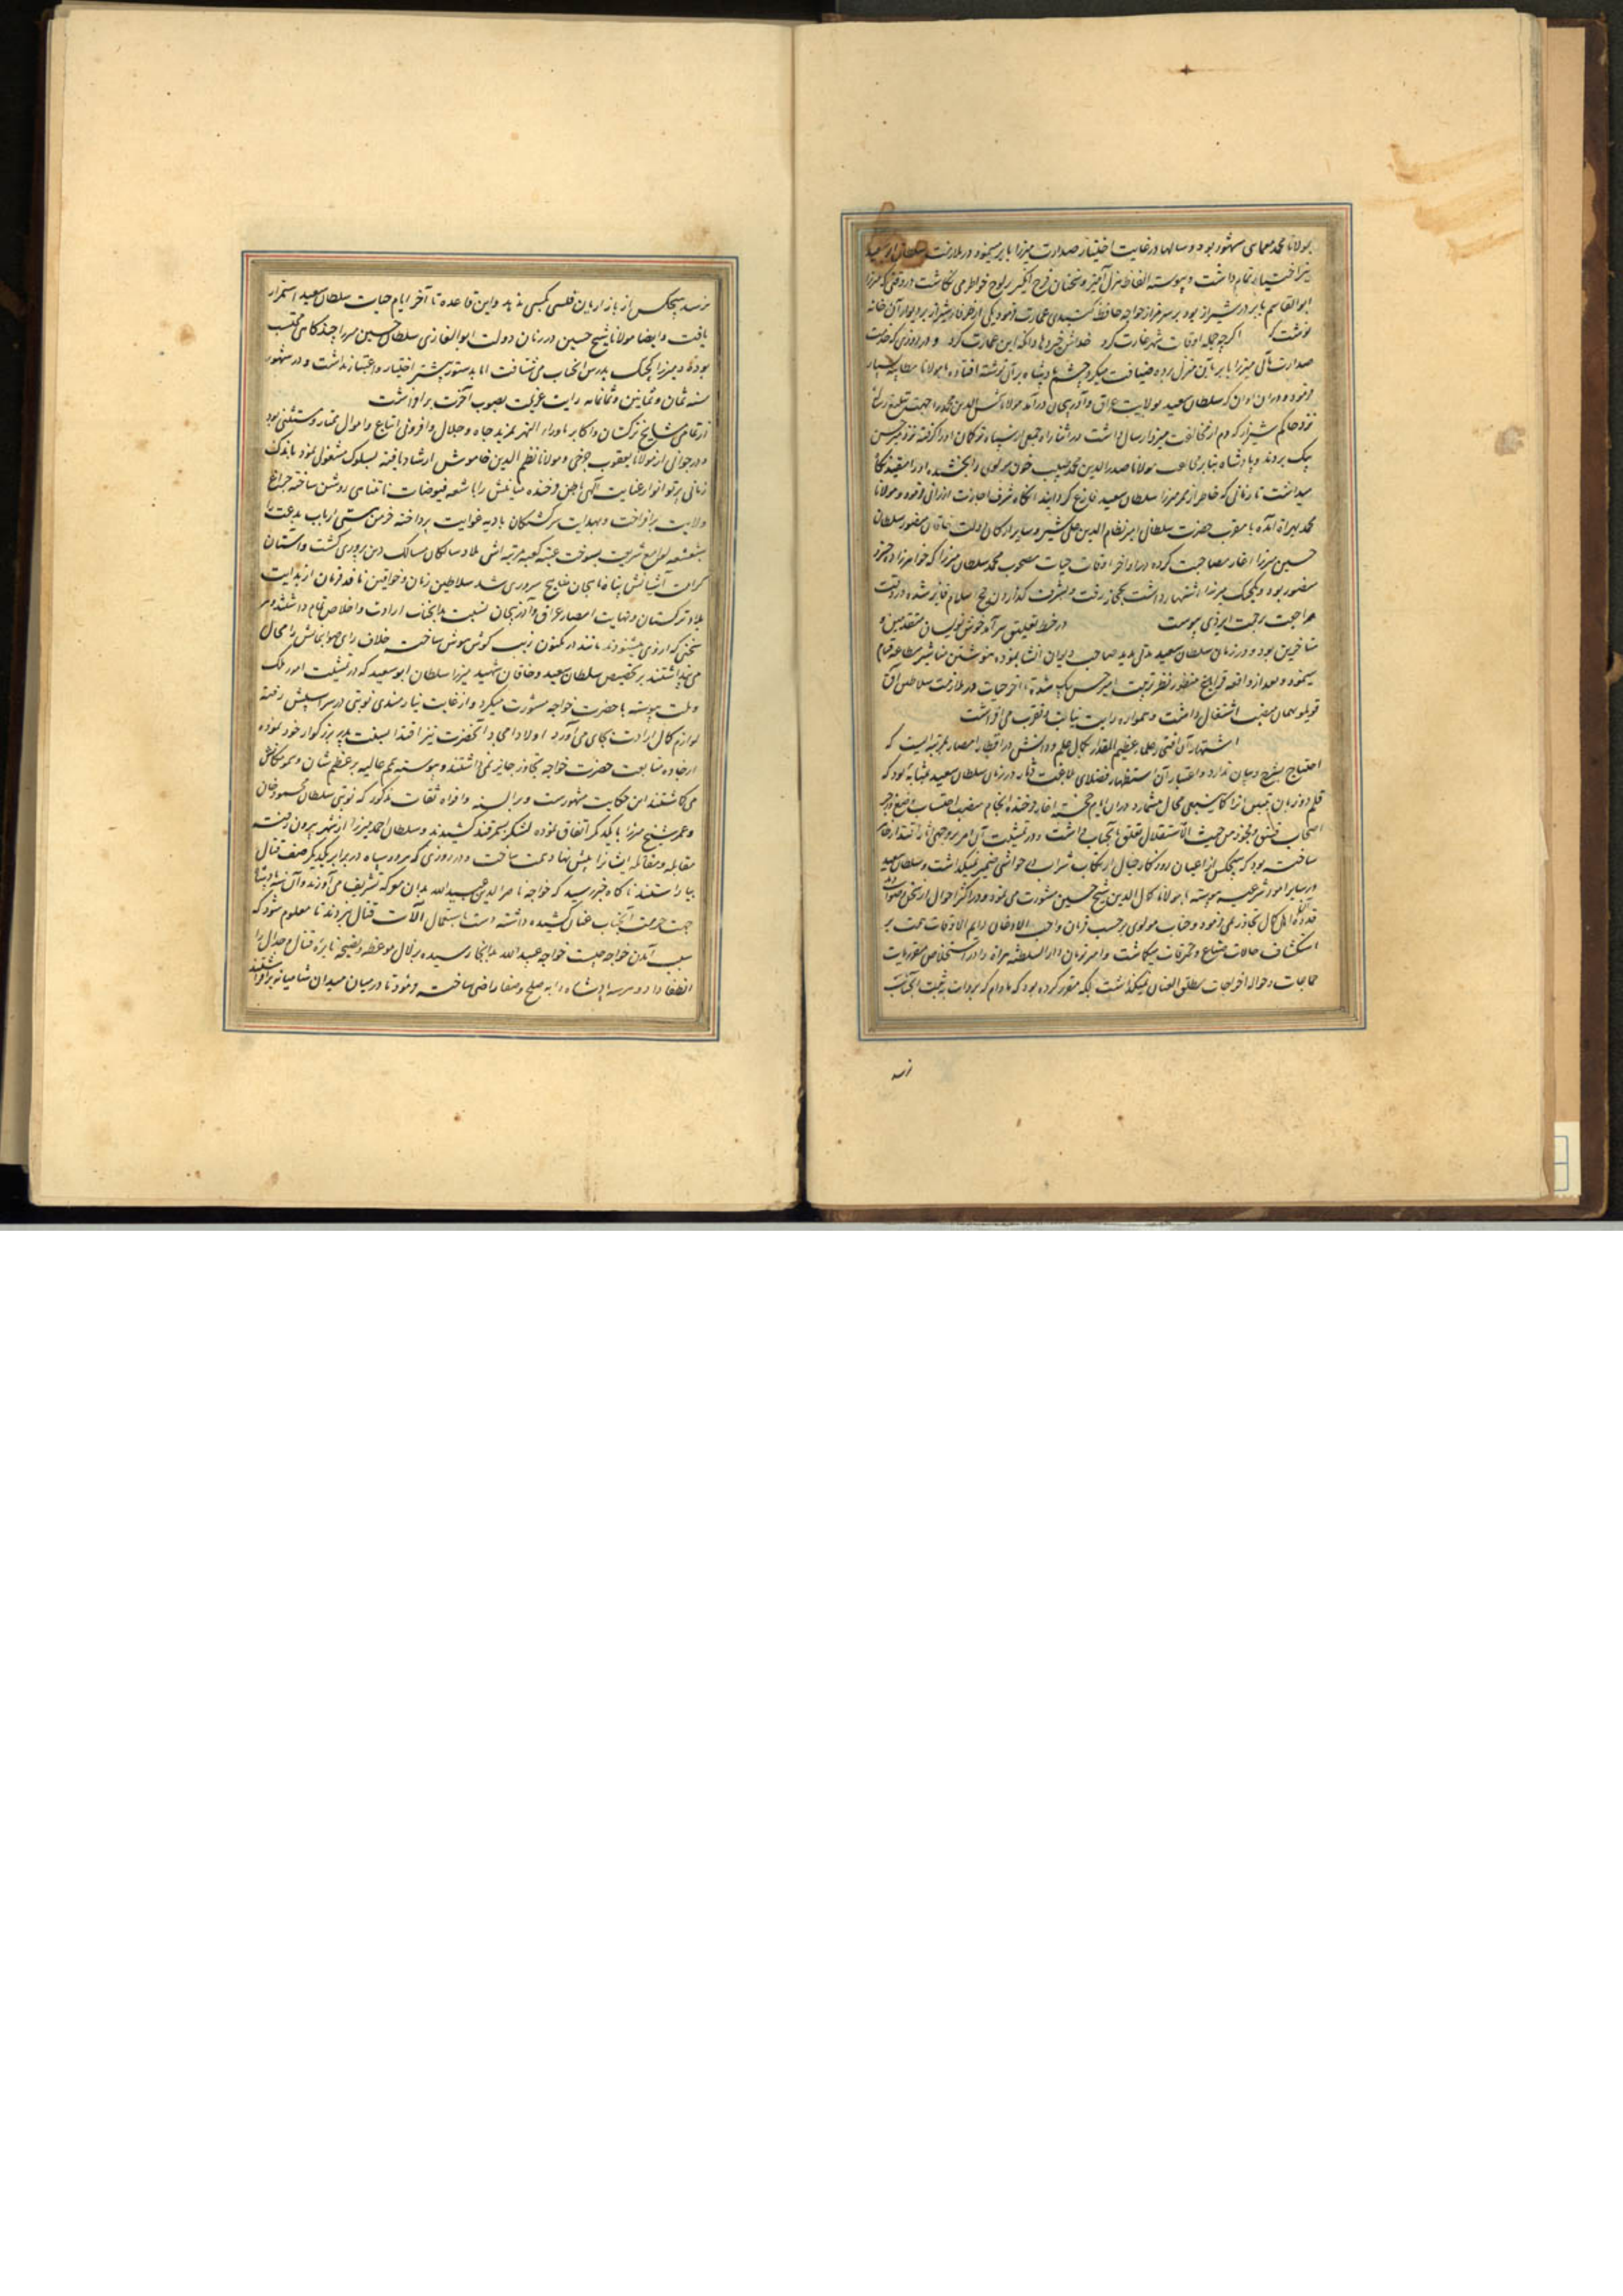 مولانا محمد معمای مشهور بود و سالها در غایت اختیار صدارت میرزا بابر مینمود و در ملازمت سلطان ابوسعید
نیز اختیار تمام داشت و پیوسته الفاظ هزل آمیز و سخنان فرح انگیز بر لوح خواطر می نگاشت در وقتی که میرزا
ابوالقاسم بابر در شیراز بود بر سر مزار خواجه حافظ گنبدی عمارت فرمود یکی از ظرفا شیراز بر دیوار آن خانه
نوشت که اگرچه جمله اوقات شهر غارت کرد خداش خیر دهاد آنکه این عمارت کرد و در روزی که حضرت
صدارت مآلی میرزا بابر را بآن منزل برده ضیافت میکرد چشم پادشاه بر آن نوشته افتاده با مولانا مطایبه بسیار
فرمود و در ان اوان که سلطان سعید بولایت عراق و آذربیجان درآمد مولانا شمس الدین محمد را جهت تبلیغ رسالتی
نزد حاکم شیراز که دم از مخالفت میزد ارسال داشت در اثناء راه جمعی از سپاه ترکمان او را گرفته نزد میر حسن
بیک بردند و پادشاه بنا بر مولانا صدر الدین محمد طبیب خون مولوی را بخشیده او را مقید نگاه
میداشت تا زمانی که خاطر از مهم میرزا سلطان سعید فارغ گردانید آنگاه شرف اجازت ارزانی فرمود و مولانا
محمد بهراة آمده با مقرب حضرت سلطانی امیر نظام الدین علی شیر و سایر ارکان دولت خاقان منصور سلطان
حسین میرزا آغاز مصاحبت کرده در اواخر اوقات حیات مصحوب محمد سلطان میرزا که خواهرزاده خسرو
منصور بود و بکیجیک میرزا اشتهار داشت بحجاز رفت و بشرف گذاردن حج اسلام فایز شده در وقت
مراجعت برحمت ایزدی پیوست در خط تعلیق سرآمد خوش نویسان متقدمین و
متاخرین بود و در زمان سلطان سعید مدتی مدید صاحب دیوان انشا بوده بنوشتن مناشیر مطاعه قیام
مینمود و بعد از واقعه قراباغ منظور نظر تربیت امیر حسن بیک شده تا آخر حیات در ملازمت سلاطین آق
قویلو بهمان منصب اشتغال داشت و همواره رایت نیابت و تقرب می افراشت
اشتهار آن افتخار علماء عظیم المقدار بکمال علم و دانش در اقطار امصار بمرتبه ایست که
احتیاج بشرح و بیان ندارد و اعتبار آن استظهار فضلای بلاغت دثار در زمان سلطان سعید بمثابه بود که
قلم دو زبان تبیین آنرا کما ینبغی محال میشمارد در ان ایام خجسته آغاز فرخنده انجام منصب احتساب و منع و زجر
اصحاب فسق و فجور من حیث الاستقلال تعلق بآنجناب میداشت و در تمشیت آن امر بر وجهی آثار اقتدار ظاهر
ساخت بود که هیچکس از اعیان روزگار خیال ارتکاب شراب بر حواشی ضمیر نمیگذاشت و سلطان سعید
در سایر امور شرعیه پیوسته با مولانا کمال الدین شیخ حسین مشورت می نمود و در اکثر احوال از سخن و صوابدید
قدوه اهل کمال تجاوز نمی فرمود و جناب مولوی بر حسب فرمان واجب الاذعان دایم الاوقات همت بر
استکشاف حالات صناع و محترفات میگماشت و امیر زمان دار السلطنه هراة را در استخلاص مقررات
حاجات و حواله اخراجات مطلق العنان نمیگذاشت بلکه مقرر کرده بود که مادام که بروات بثبت آنجناب
نرسد
نرسد هیچکس از بازاریان فلسی بکسی ندهد و این قاعده تا آخر ایام حیات سلطان سعید استمرار
یافت و ایضا مولانا شیخ حسین در زمان دولت ابوالغازی سلطان حسین میرزا چندگاهی محتسب
بوده و میرزا کیجیک بدرس آنجناب می شتافت اما بدستور پیشتر اختیار و اعتبار نداشت و در شهور
سنه ثمان و ثمانین و ثمانمایه رایت عزیمت بصوب آخرت برافراشت
از تمامی مشایخ ترکستان و اکابر ماوراء النهر بمزید جاه و جلال و افزونی اتباع و اموال ممتاز و مستثنی بود
و در جوانی از مولانا یعقوب چرخی و مولانا نظام الدین خاموش ارشاد یافته بسلوک مشغولی نمود باندک
زمانی پرتو انوار عنایت الهی باطن فرخنده میامنش را باشعه فیوضات نامتناهی روشن ساخته چراغ
ولایت برافراخت و بهدایت سرگشتگان بادیه غوایت پرداخته خرمن هستی ارباب بدعت را
بشعشعه لوامع شریعت بسوخت عتبه کعبه مرتبه اش ملاذ سالکان مسالک دین پروری گشت و آستان
کرامت آشیانش پناه طالبان مناهج سروری شد سلاطین زمان و خواقین نافذ فرمان از بدایت
بلاد ترکستان و نهایت امصار عراق و آذربیجان نسبت بدانجناب ارادت و اخلاص تمام داشتند و هر
سخنی که از وی میشنودند مانند در مکنون زیب گوش هوش ساخته خلاف رای صوابنمایش را محال
می پنداشتند بتخصیص سلطان سعید و خاقان شهید میرزا سلطان ابوسعید که در تمشیت امور ملک
و ملت پیوسته با حضرت خواجه مشورت میکرد و از غایت نیازمندی نوبتی در سر اسپش رفته
لوازم کمال ارادت بجای می آورد اولاد امجاد آنحضرت نیز اقتدا بسنت پدر بزرگوار خود نموده
از جاده متابعت حضرت خواجه تجاوز جایز نمی داشتند و پیوسته همم عالیه بر عظم شان و سمو مکانش
می گماشتند این حکایت مشهورست و بر السنه و افواه ثقات مذکور که نوبتی سلطان محمود خان
و عمر شیخ میرزا با یکدیگر اتفاق نموده لشکر بسمرقند کشیدند و سلطان احمد میرزا از شهر بیرون رفته
مقابله و مقاتله ایشانرا پیش نهاد همت ساخت و در روزی که هر دو سپاه در برابر یکدیگر صف قتال
بیاراستند ناگاه خبر رسید که خواجه ناصر الدین عبید الله بدان معرکه تشریف می آورند و آن سه پادشاه
جهت حرمت آنجناب عنان کشیده داشته دست باستعمال آلات قتال نبردند تا معلوم شود که
سبب آمدن خواجه چیست خواجه عبید الله بدانجا رسیده بزلال موعظه و نصیحه نایره قتال و جدال را
انطفا داد و هر سه پادشاه را به صلح و صفا راضی ساخته فرمود تا در میان میدان شامیانه برافراشتند